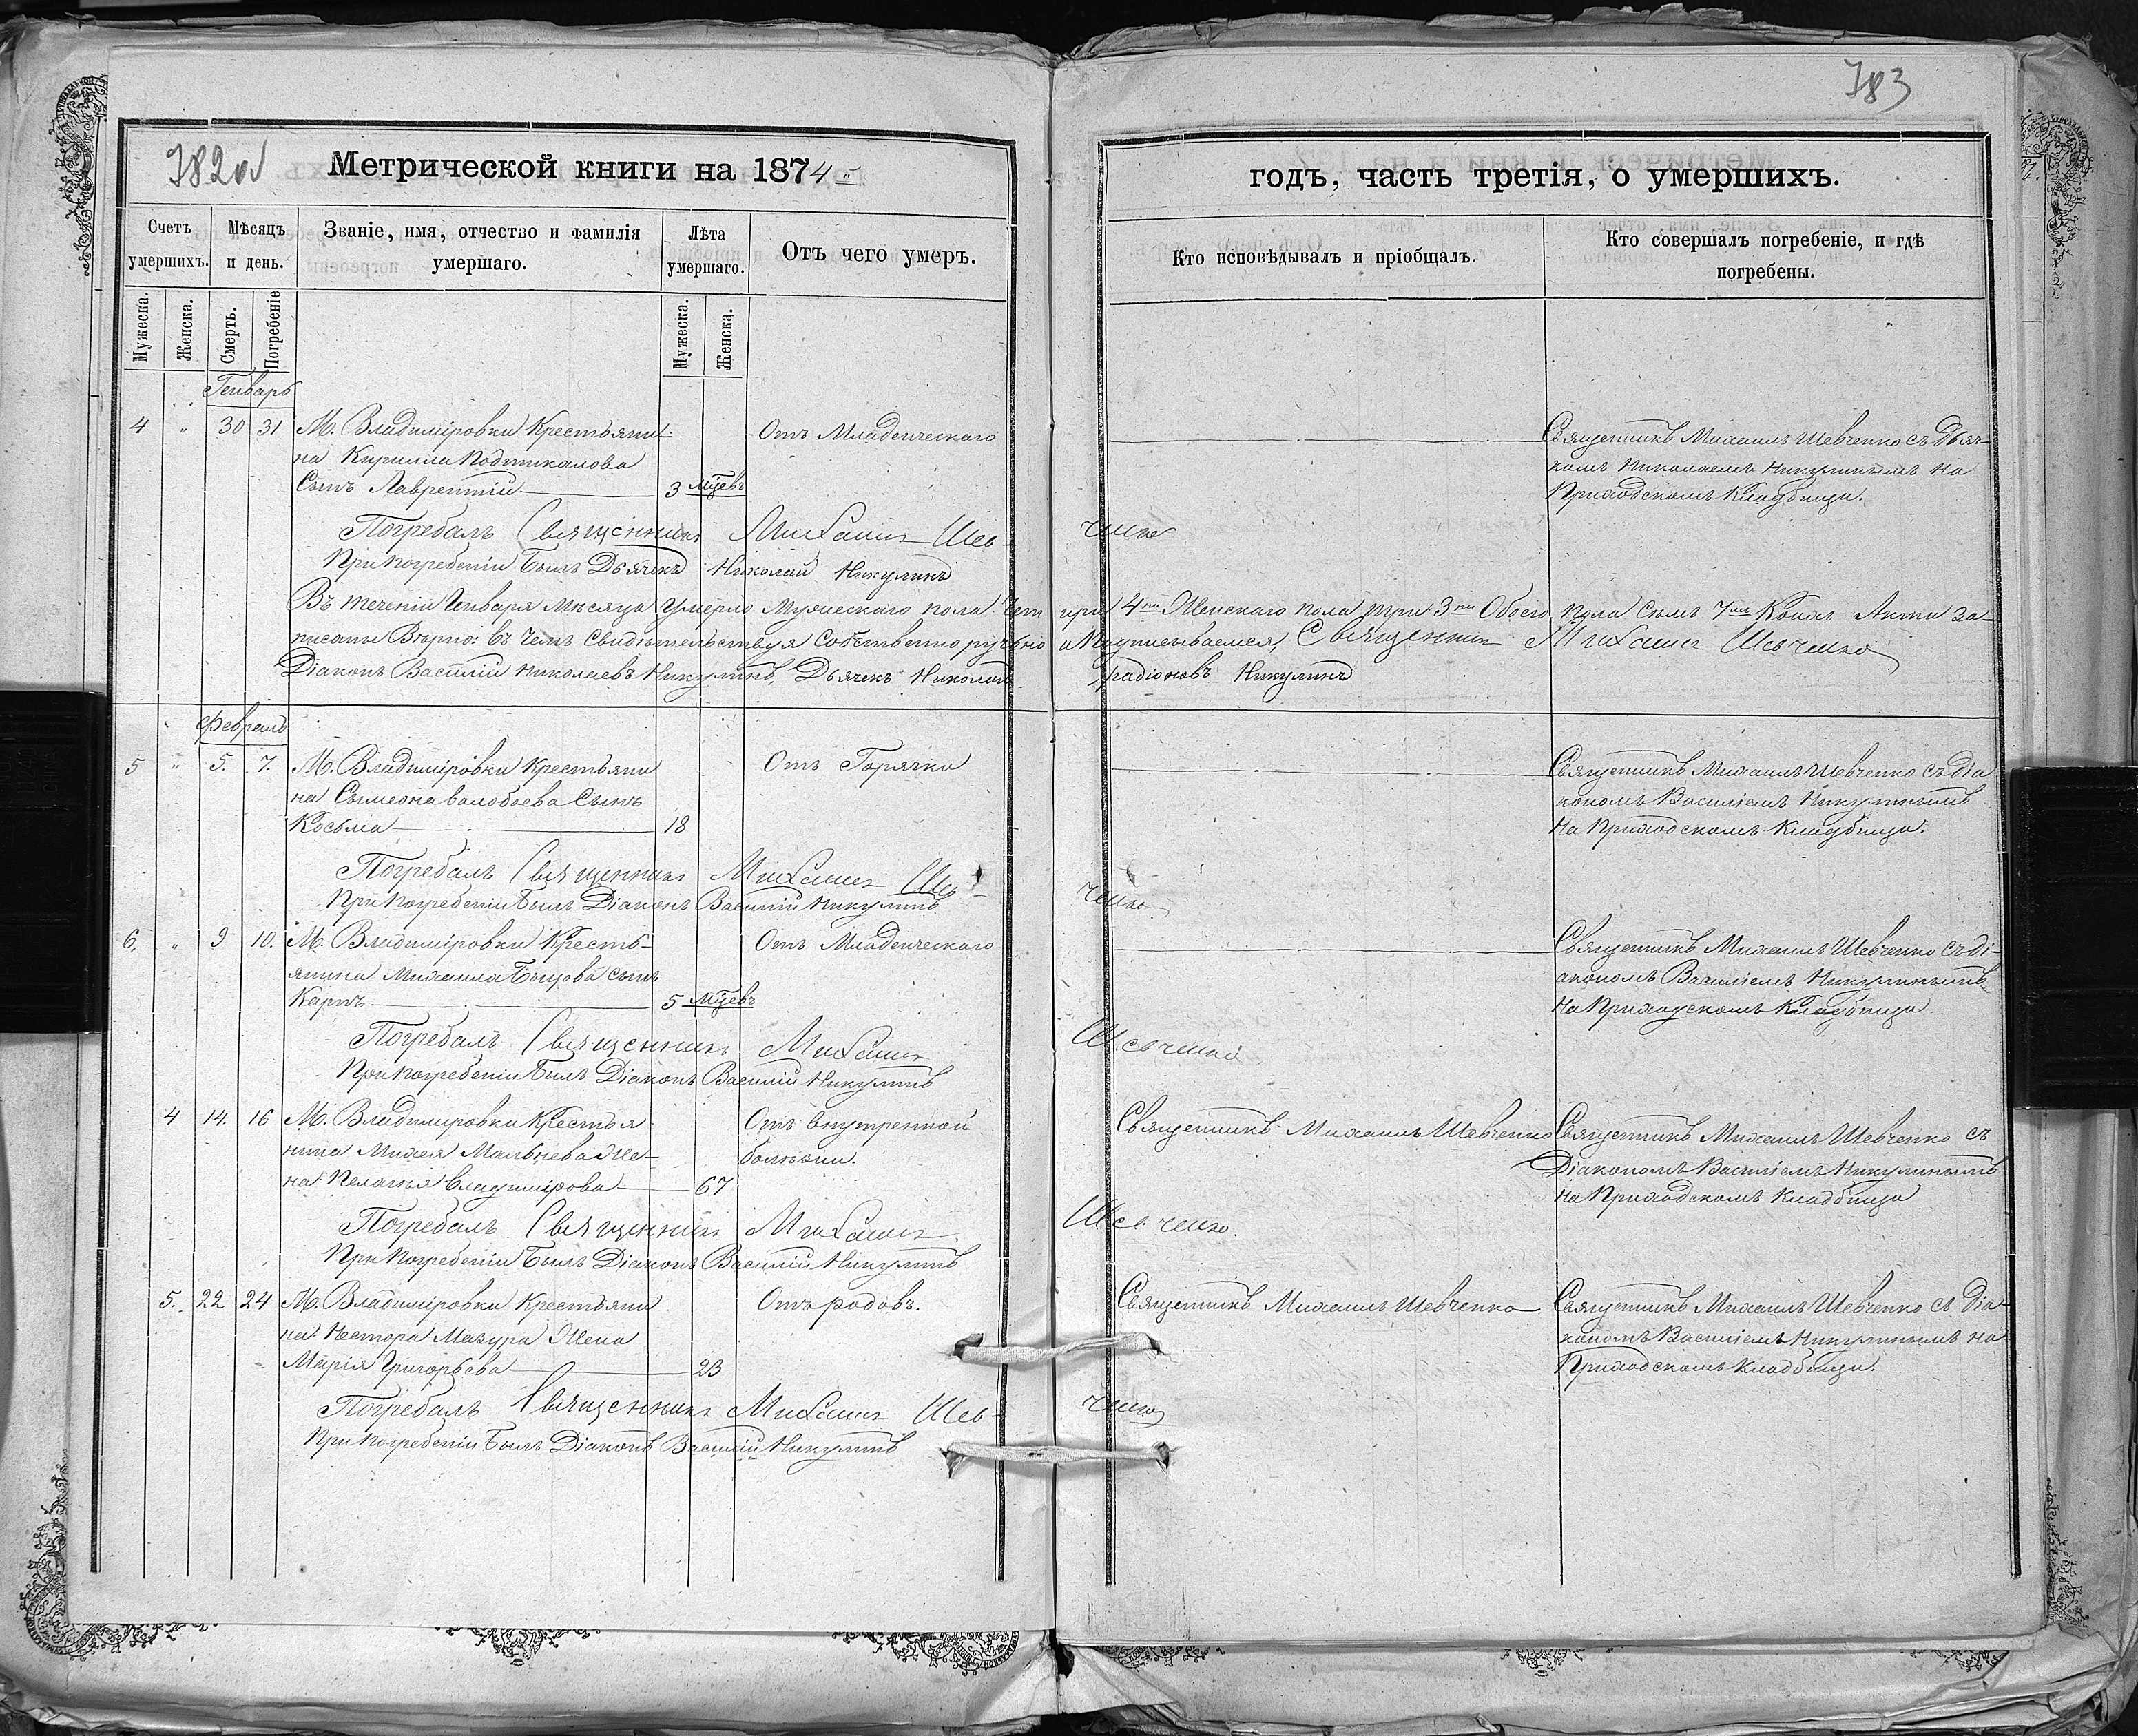 783
782об
Метрической книги на 1874
годъ, часть третія, о умершихъ.
Счетъ умершихъ.
Мѣсяцъ и день.
Званіе, имя, отчество и фамилія умершаго.
Лѣта умершаго.
Отъ чего умеръ.
Кто исповѣдывалъ и пріобщалъ.
Кто совершалъ погребеніе, и гдѣ погребены.
Мужеска.
Женска.
Смерть.
Погребеніе
Мужеска.
Женска.
Генварь
4 " 30 31 М. Владиміровки Крестьяни- Отъ Младенческаго Священникъ Михаилъ Шевченко съ Дьяч-
на Кирилла Подтикалова комъ Николаемъ Никулинымъ на
Сынъ Лаврентій 3 мцевъ Приходскомъ Кладбищи.
Погребалъ Священникъ Михаилъ Шев-ченко
При погребеніи Былъ Дьячекъ Николай Никулинъ
Въ теченіи Генваря Мѣсяца умерло Мужескаго пола четыри 4 Женскаго пола три 3 Обоего пола семь 7 Коихъ Акты за-
писаны Вѣрно: въ чемъ Свидѣтельствуя Собственно ручно и Подписываемся, Священникъ Михаилъ Шевченко
Діаконъ Василій Николаевъ Никулинъ, Дьячекъ Николай Радіоновъ Никулинъ
Февраль
5 " 5. 7. М. Владиміровки Крестьяни Отъ Горячки Священникъ Михаилъ Шевченко съ Діа
на Сѵмеона Валобоева Сынъ кономъ Василіемъ Никулинымъ
Косьма 18 На Приходскомъ Кладбищи.
Погребалъ Священникъ Михаилъ Шев-ченко.
При погребеніи Былъ Діаконъ Василій Никулинъ
6. " 9 10. М. Владиміровки Кресть- Отъ Младенческаго Священникъ Михаилъ Шевченко съ ді-
янина Михаила Бъцова сынъ акономъ Василіемъ Никулинымъ
Карпъ 5 мцевъ На Приходскомъ Кладбищи
Погребалъ Священникъ Михаилъ Шевченко
При погребеніи Былъ Діаконъ Василій Никулинъ
4 14. 16 М. Владиміровки Крестья Отъ внутренной Священникъ Михаилъ Шевченко Священникъ Михаилъ Шевченко съ
нина Михея Мальцева Же- болѣзни. Діакономъ Василіемъ Никулинымъ
на Пелагія Владимірова 67 на Приходскомъ Кладбищи
Погребалъ Священникъ Михаилъ Шевченко.
При погребеніи Былъ Діаконъ Василій Никулинъ
5. 22 24 М. Владиміровки Крестьяни Отъ родовъ. Священникъ Михаилъ Шевченко Священникъ Михаилъ Шевченко съ Діа-
на Нестора Мазура Жена кономъ Василіемъ Никулинымъ на
Марія Григорьева 23 Приходскомъ Кладбищи.
Погребалъ Священникъ Михаилъ Шев-ченко
При погребеніи Былъ Діаконъ Василій Никулинъ